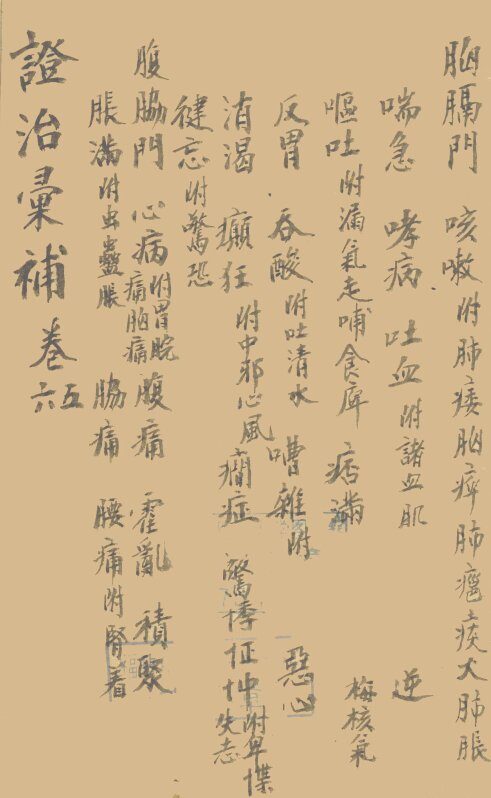 胸膈門　咳嗽附肺痿胸痺肺癰痰火肺脹
喘急　哮病　吐血附諸血肌　逆
嘔吐附漏氣走哺食痺　痞滿　梅核氣
反胃　吞酸附吐清水　嘈雜附　惡心
消渴　癲狂附中邪心風　癇症　驚悸怔忡附卑惵失志
健忘附驚恐
腹脇門　心痛附胃脘痛胸痛　腹痛　霍亂　積聚
脹滿附虫蠱脹　脇痛　腰痛附腎着
證治彙補　卷五六